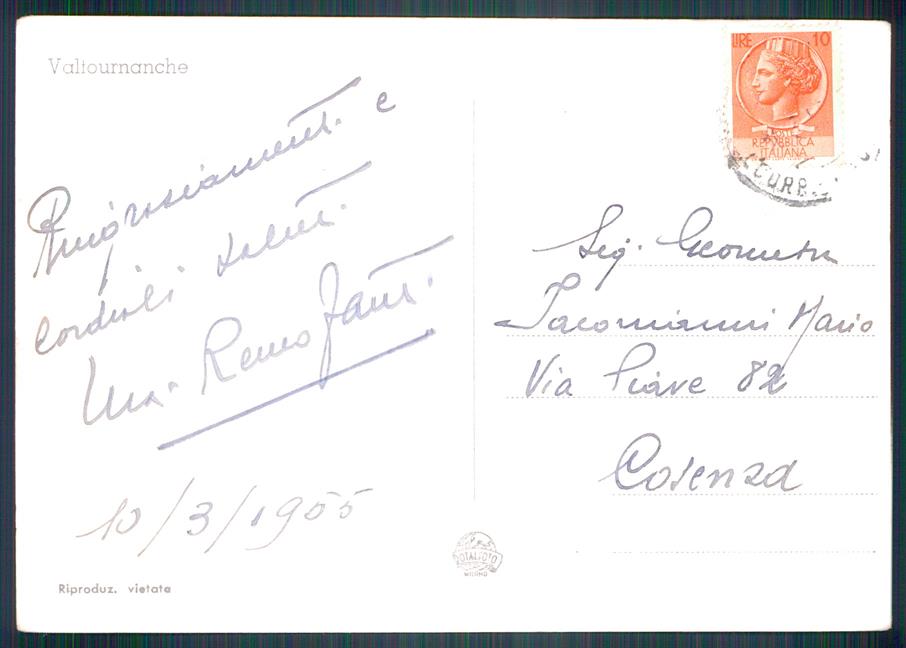 Valtournanche
Ringraziamenti e
cordiali saluti.
Remo
10/3/1955
Riproduz. vietata
TOTALFOTO
MILANO
LIRE 10
POSTE
REPUBBLICA
ITALIANA
Sig. Geometra
Iacomianni Mario
Via Piave 82
Cosenza